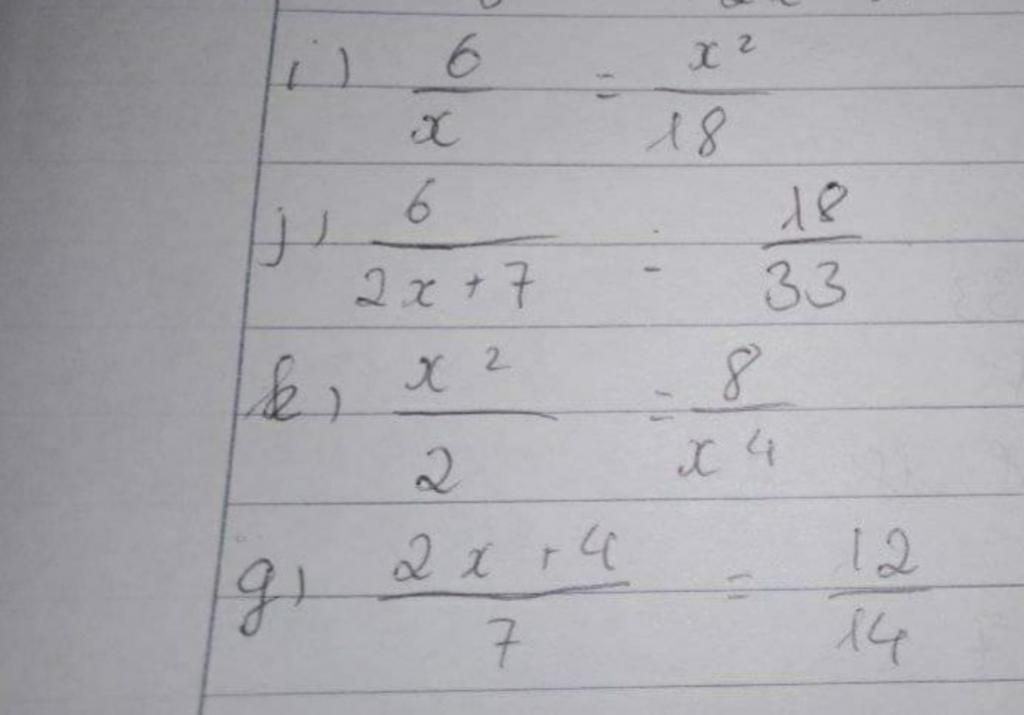 i) 6/x = x²/18
j) 6/(2x+7) = 18/33
k) x²/2 = 8/x⁴
g) (2x+4)/7 = 12/14